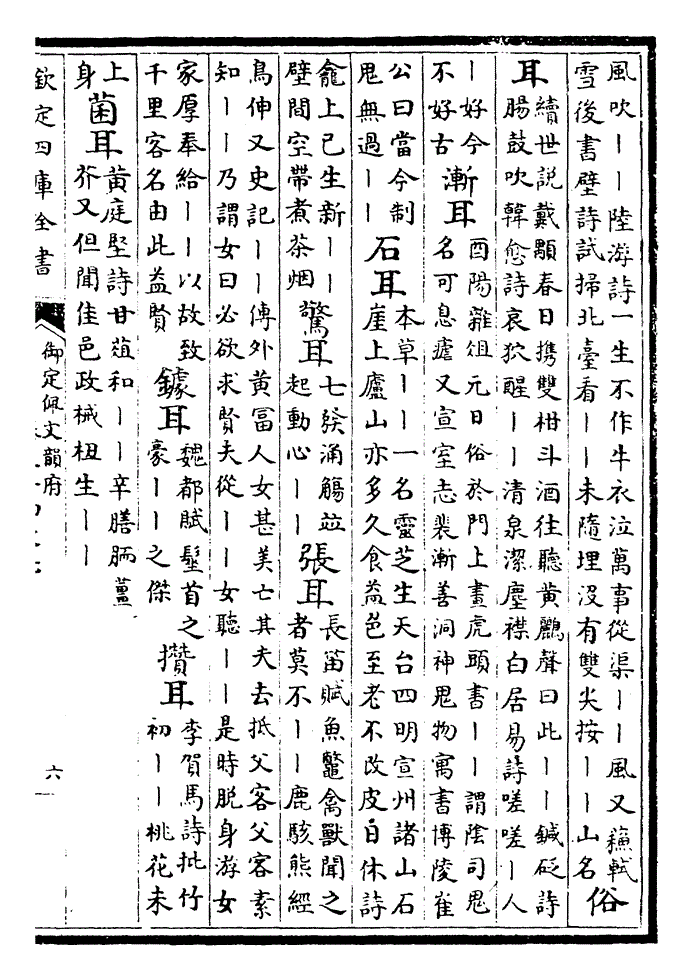 風吹丨丨陸游詩一生不作牛衣泣萬事從渠丨丨風又蘇軾
雪後書壁詩試掃北臺看丨丨未隨埋沒有雙尖按丨丨山名
俗
耳
續世說戴顒春日携雙柑斗酒往聽黃鸝聲曰此丨丨鍼砭詩
腸鼓吹韓愈詩哀狖醒丨丨清泉潔塵襟白居易詩嗟嗟丨人
丨好今
不好古
漸耳
酉陽雜俎元日俗於門上畫虎頭書丨丨謂陰司鬼
名可息瘧又宣室志裴漸善洞神鬼物寓書博陵崔
公曰當今制
鬼無過丨丨
石耳
本草丨丨一名靈芝生天台四明宣州諸山石
崖上廬山亦多久食益色至老不改皮日休詩
龕上已生新丨丨
壁間空帶煮茶烟
驚耳
七發涌觴並
起動心丨丨
張耳
長笛賦魚鼈禽獸聞之
者莫不丨丨鹿駭熊經
鳥伸又史記丨丨傳外黃富人女甚美亡其夫去抵父客父客素
知丨丨乃謂女曰必欲求賢夫從丨丨女聽丨丨是時脫身游女
家厚奉給丨丨以故致
千里客名由此益賢
鐻耳
魏都賦髽首之
豪丨丨之傑
攢耳
李賀馬詩批竹
初丨丨桃花未
上
身
菌耳
黃庭堅詩甘葅和丨丨辛膳胹薑
芥又但聞佳邑政械杻生丨丨
欽定四庫全書
御定佩文韻府
六